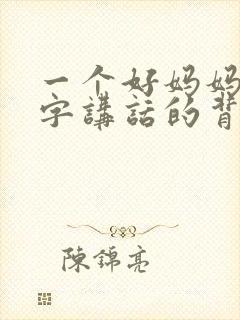 一个好妈妈
字講話的背
陳錦亮